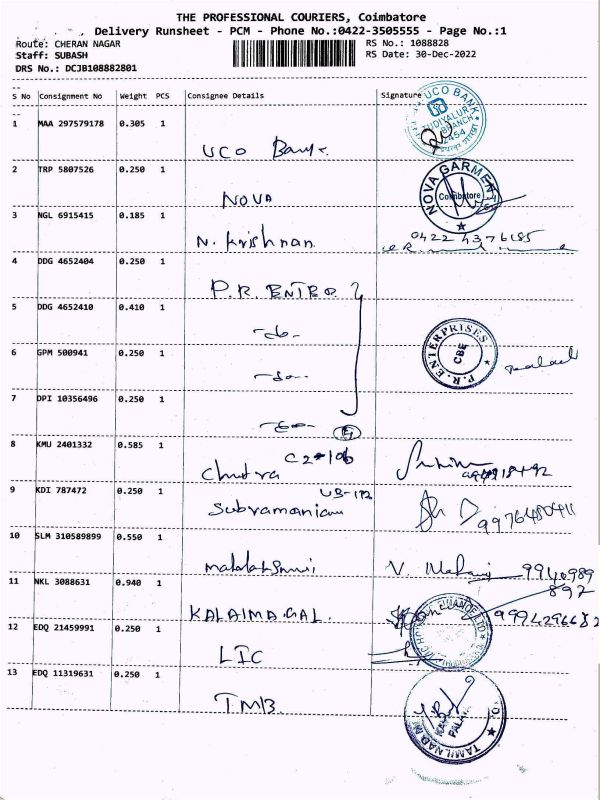 THE PROFESSIONAL COURIERS, Coimbatore
Delivery Runsheet - PCM - Phone No.:0422-3505555 - Page No.:1
Route: CHERAN NAGAR RS No.: 1088828
Staff: SUBASH RS Date: 30-Dec-2022
DRS No.: DCJB108882801
S No Consignment No Weight PCS Consignee Details Signature
1 MAA 297579178 0.305 1 UCO Bank
UCO BANK TUDIYALUR BRANCH 2454
2 TRP 5807526 0.250 1 NOVA
NOVA GARMENT Coimbatore
3 NGL 6915415 0.185 1 N. Krishnan 0422 4376185
4 DDG 4652404 0.250 1 P.R. ENTER
5 DDG 4652410 0.410 1 -do-
P.R. ENTERPRISES CBE
6 GPM 500941 0.250 1 -do-
7 DPI 10356496 0.250 1 -do-
8 KMU 2401332 0.585 1 Chitra C2-106
9 KDI 787472 0.250 1 Subramaniam 9976480411
10 SLM 310589899 0.550 1 V. 9940989
892
11 NKL 3088631 0.940 1 KALAIMAGAL. 9994296682
12 EDQ 21459991 0.250 1 LIC
13 EDQ 11319631 0.250 1 TMB
TAMILNAD M